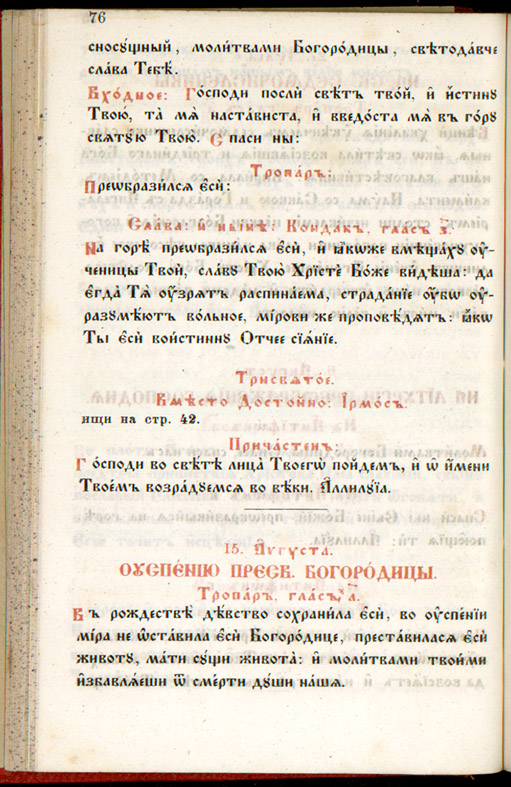 76
сносꙋ́щный, моли́твами Богоро́дицы, свѣтода́вче
сла́ва Тебѣ̀.
Вхо́дное: Го́споди послѝ свѣ́тъ тво́й, и҆ и҆́стинꙋ
Твою̀, та̀ мѧ̀ наста́виста, и҆ введо́ста мѧ̀ въ го́рꙋ
свѧтꙋ́ю Твою̀. Спаси ны:
Тропа́рь:
Преѡбрази́лсѧ є҆сѝ:
Сла́ва: и҆ ны́нѣ: Конда́къ, гла́съ з҃.
На горѣ̀ преѡбрази́лсѧ є҆сѝ, и҆ ꙗ҆́кѡже вмѣща́хꙋ ᲂу҆-
ченицы Твоѝ, сла́вꙋ Твою̀ Хрїстѐ Бо́же ви́дѣша: да
є҆гда̀ Тѧ̀ ᲂу҆́зрѧтъ распина́ема, страда́нїе ᲂу҆́бѡ ᲂу҆-
разꙋмѣ́ютъ во́льное, мі́рови же проповѣ́дѧтъ: ꙗ҆́кѡ
Ты̀ є҆сѝ вои́стиннꙋ Отчее сїѧ́нїе.
Трисвѧто́е.
Вмѣ́сто Досто́йно: І҆рмо́съ.
ищи на стр. 42.
Прича́стенъ:
Го́споди во свѣ́тѣ лица̀ Твоегѡ̀ по́йдемъ, и҆ ѡ҆ и҆́мени
Твое́мъ возра́дꙋемсѧ во вѣ́ки. А҆ллилꙋ́їа.
15. А҆́ѵгꙋста.
ᲂУ҆СПЕ́НЇЮ ПРЕСВ. БОГОРО́ДИЦЫ.
Тропа́рь, гла́съ а҃.
Въ рождествѣ̀ дѣ́вство сохрани́ла є҆сѝ, во ᲂу҆спе́нїи
мі́ра не ѡ҆ста́вила є҆сѝ Богоро́дице, преста́виласѧ є҆сѝ
животꙋ̀, ма́ти сꙋ́щи живота̀: и҆ моли́твами твои́ми
и҆збавлѧ́еши ѿ сме́рти дꙋ́ши на́шѧ.